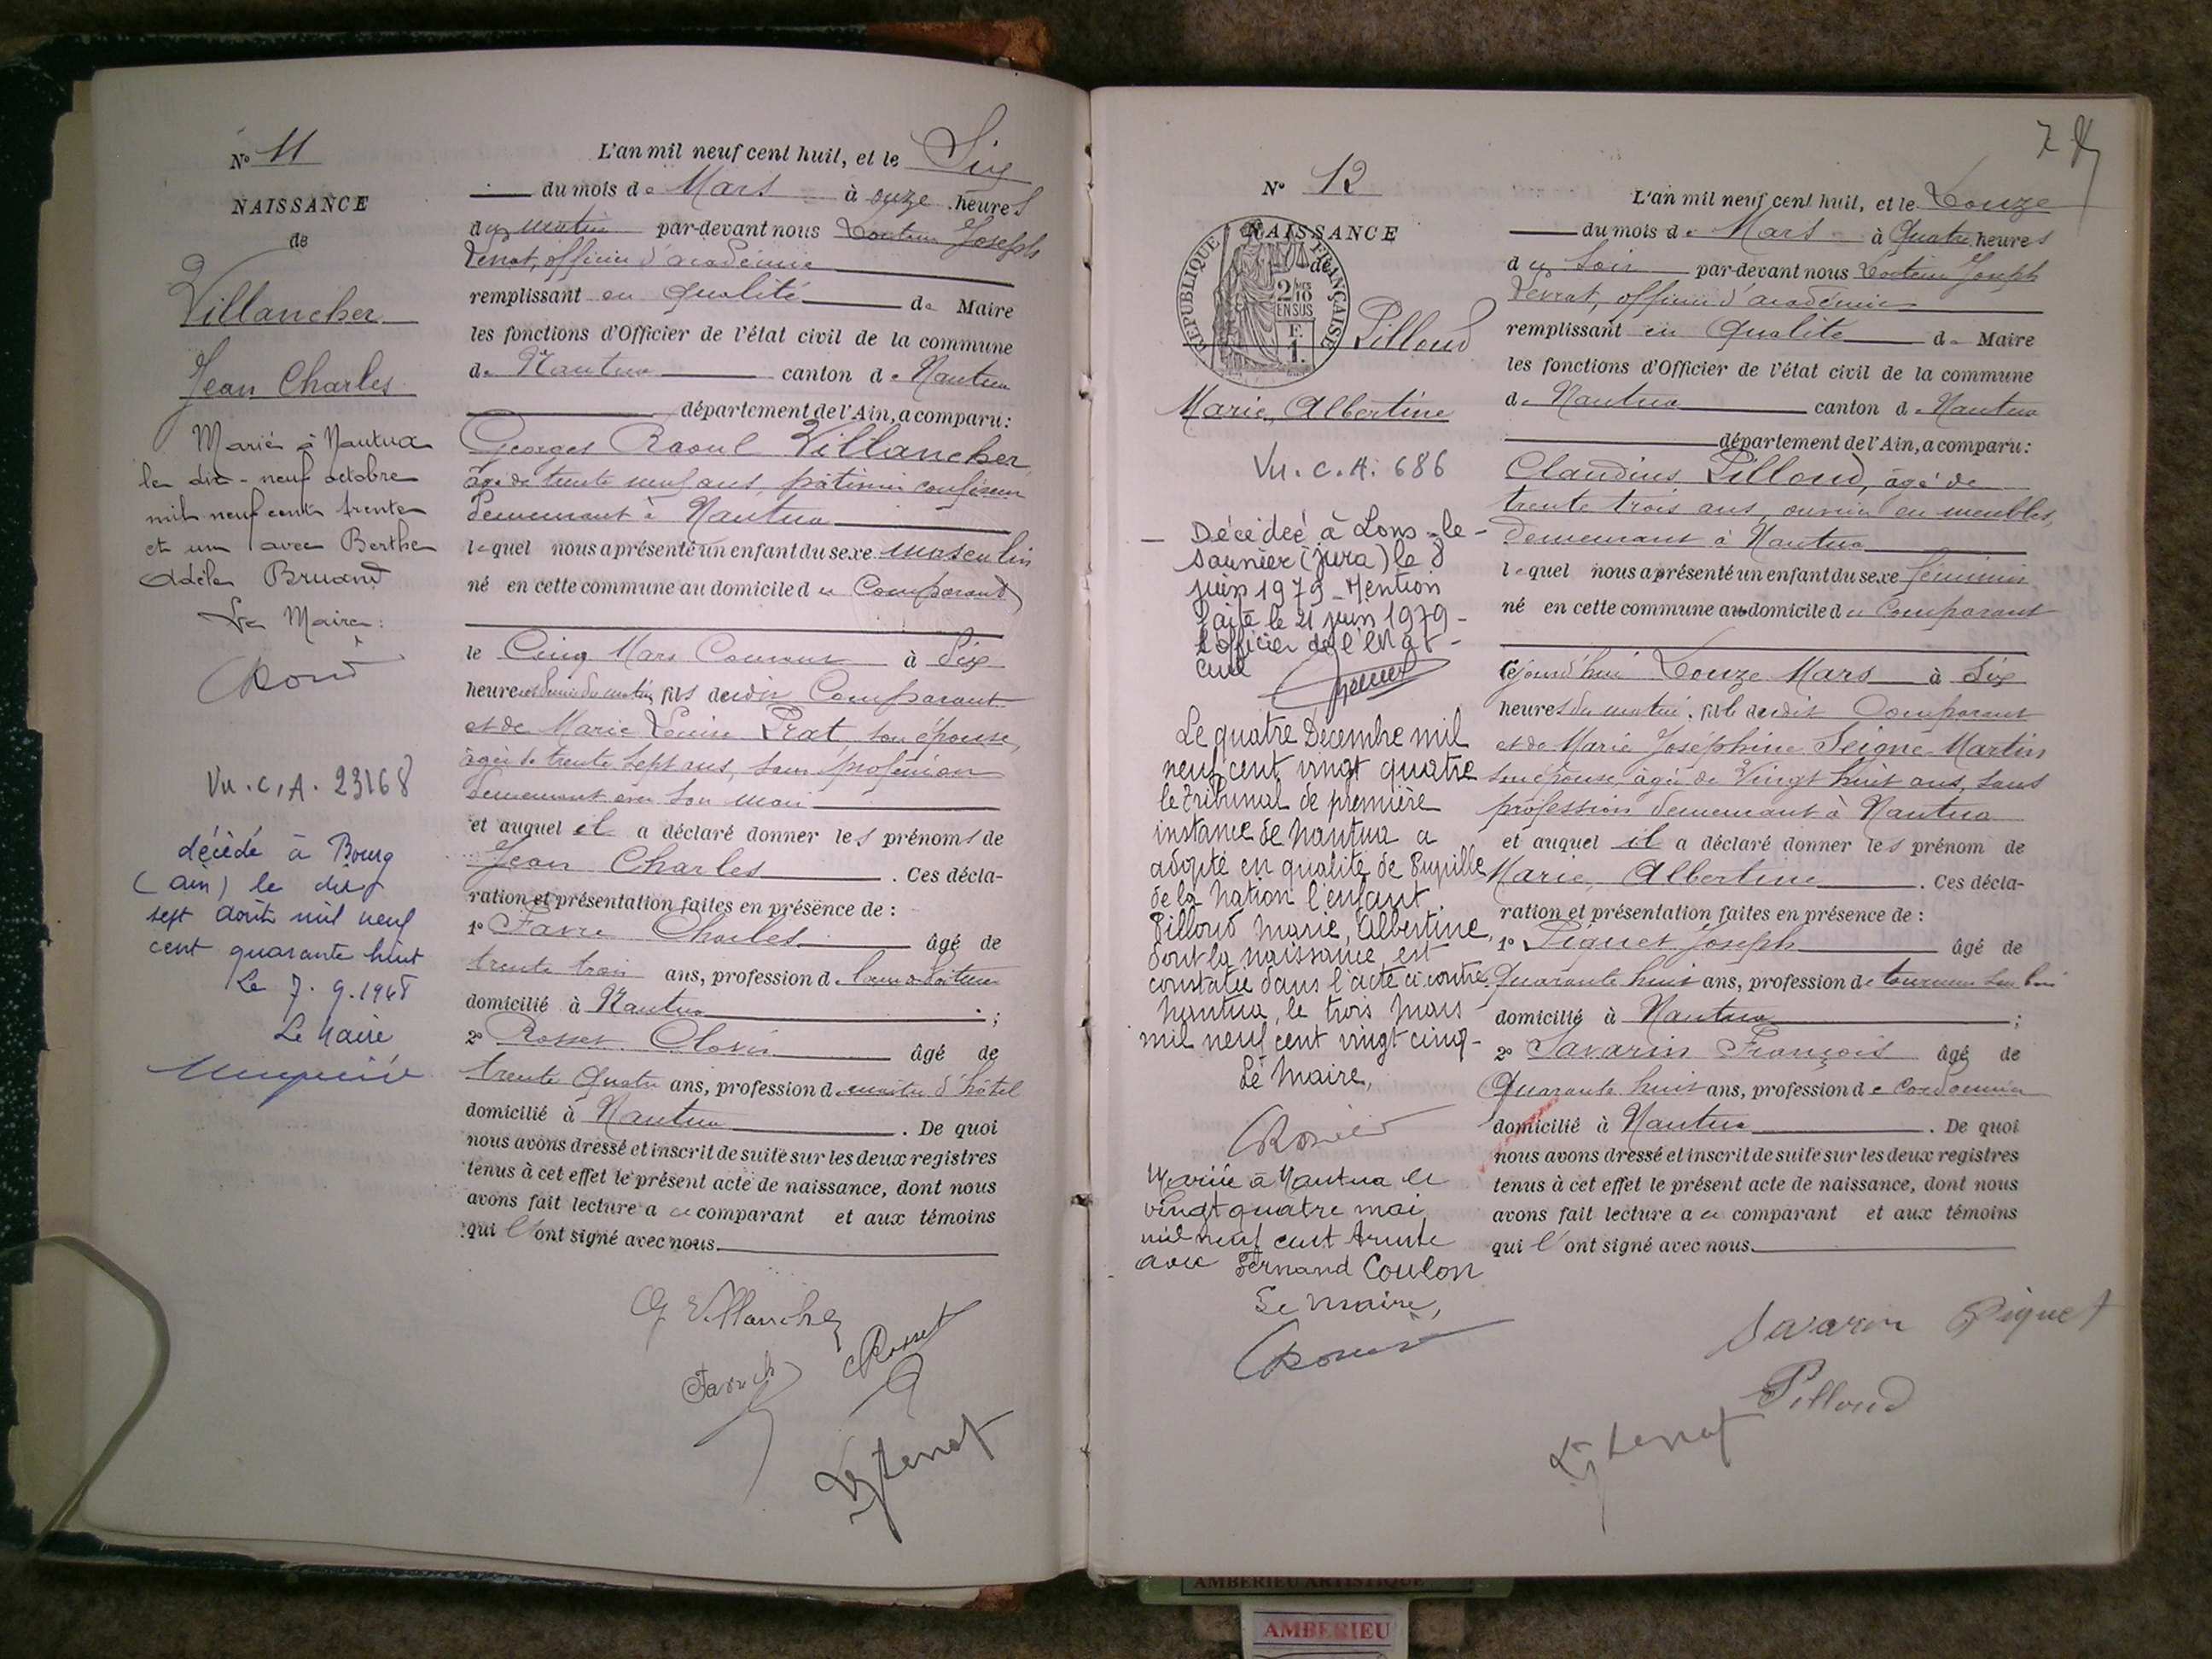 N° 11
NAISSANCE
de
Villancher
Jean Charles
Marié à Nantua
le dix-neuf octobre
mil neuf cent trente
et un avec Berthe
Adèle Bruand
Le Maire:
Vu. C. A. 23168
décédé à Bourg
(ain) le dix
sept août mil neuf
cent quarante huit
Le 7.9.1948
Le Maire
L'an mil neuf cent huit, et le Six
du mois de Mars à onze heures
du matin par-devant nous Docteur Joseph
officier d'académie
remplissant en qualité de Maire
les fonctions d'Officier de l'état civil de la commune
de Nantua canton de Nantua
département de l'Ain, a comparu:
Georges Raoul Villancher
âgé de trente neuf ans, pâtissier confiseur
demeurant à Nantua
lequel nous a présenté un enfant du sexe masculin
né en cette commune au domicile du Comparant
le Cinq Mars Courant à Six
heures et demie du matin, fils de lui dit Comparant
et de Marie Louise Prat, son épouse,
âgée de trente sept ans, sans profession
demeurant avec son mari
et auquel il a déclaré donner les prénoms de
Jean Charles. Ces décla-
ration et présentation faites en présence de :
1° Favre Charles âgé de
trente trois ans, profession de
domicilié à Nantua ;
2° Rosset Clovis âgé de
trente quatre ans, profession de maître d'hôtel
domicilié à Nantua. De quoi
nous avons dressé et inscrit de suite sur les deux registres
tenus à cet effet le présent acte de naissance, dont nous
avons fait lecture a u comparant et aux témoins
qui l'ont signé avec nous.
G Villancher
CRosset
N° 12
NAISSANCE
de
RÉPUBLIQUE FRANÇAISE
2/10
EN SUS
Pilloud
Marie, Albertine
Vu. C. A. 686
Décédée à Lons-le-
Saunier (Jura) le 8
juin 1979 - Mention
faite le 21 juin 1979 -
L'officier de l'état
civil
Le quatre Décembre mil
neuf cent vingt quatre
le tribunal de première
instance de Nantua a
adopté en qualité de Pupille
de la Nation l'enfant
Pilloud Marie, Albertine,
dont la naissance est
constatée dans l'acte ci contre
Nantua, le trois Mars
mil neuf cent vingt cinq -
Le Maire,
Mariée à Nantua le
vingt quatre mai
mil neuf cent trente
avec Fernand Coulon
Le Maire,
L'an mil neuf cent huit, et le Douze
du mois de Mars à Quatre heures
du soir par-devant nous Docteur Joseph
officier d'académie
remplissant en qualité de Maire
les fonctions d'Officier de l'état civil de la commune
de Nantua canton de Nantua
département de l'Ain, a comparu:
Claudius Pilloud, âgé de
trente trois ans, ouvrier en meubles,
demeurant à Nantua
lequel nous a présenté un enfant du sexe féminin
né en cette commune au domicile du Comparant
Cejourd'hui Douze Mars à Six
heures du matin, fille de lui dit Comparant
et de Marie Joséphine Seigne-Martin
son épouse, âgée de Vingt huit ans, sans
profession demeurant à Nantua
et auquel il a déclaré donner les prénom de
Marie, Albertine. Ces décla-
ration et présentation faites en présence de :
1° Piquet Joseph âgé de
Quarante huit ans, profession de tourneur sur bois
domicilié à Nantua ;
2° Savarin François âgé de
Quarante huit ans, profession de cordonnier
domicilié à Nantua. De quoi
nous avons dressé et inscrit de suite sur les deux registres
tenus à cet effet le présent acte de naissance, dont nous
avons fait lecture a u comparant et aux témoins
qui l'ont signé avec nous.
Savarin Piquet
Pilloud
AMBERIEU ARTISTIQUE
AMBERIEU